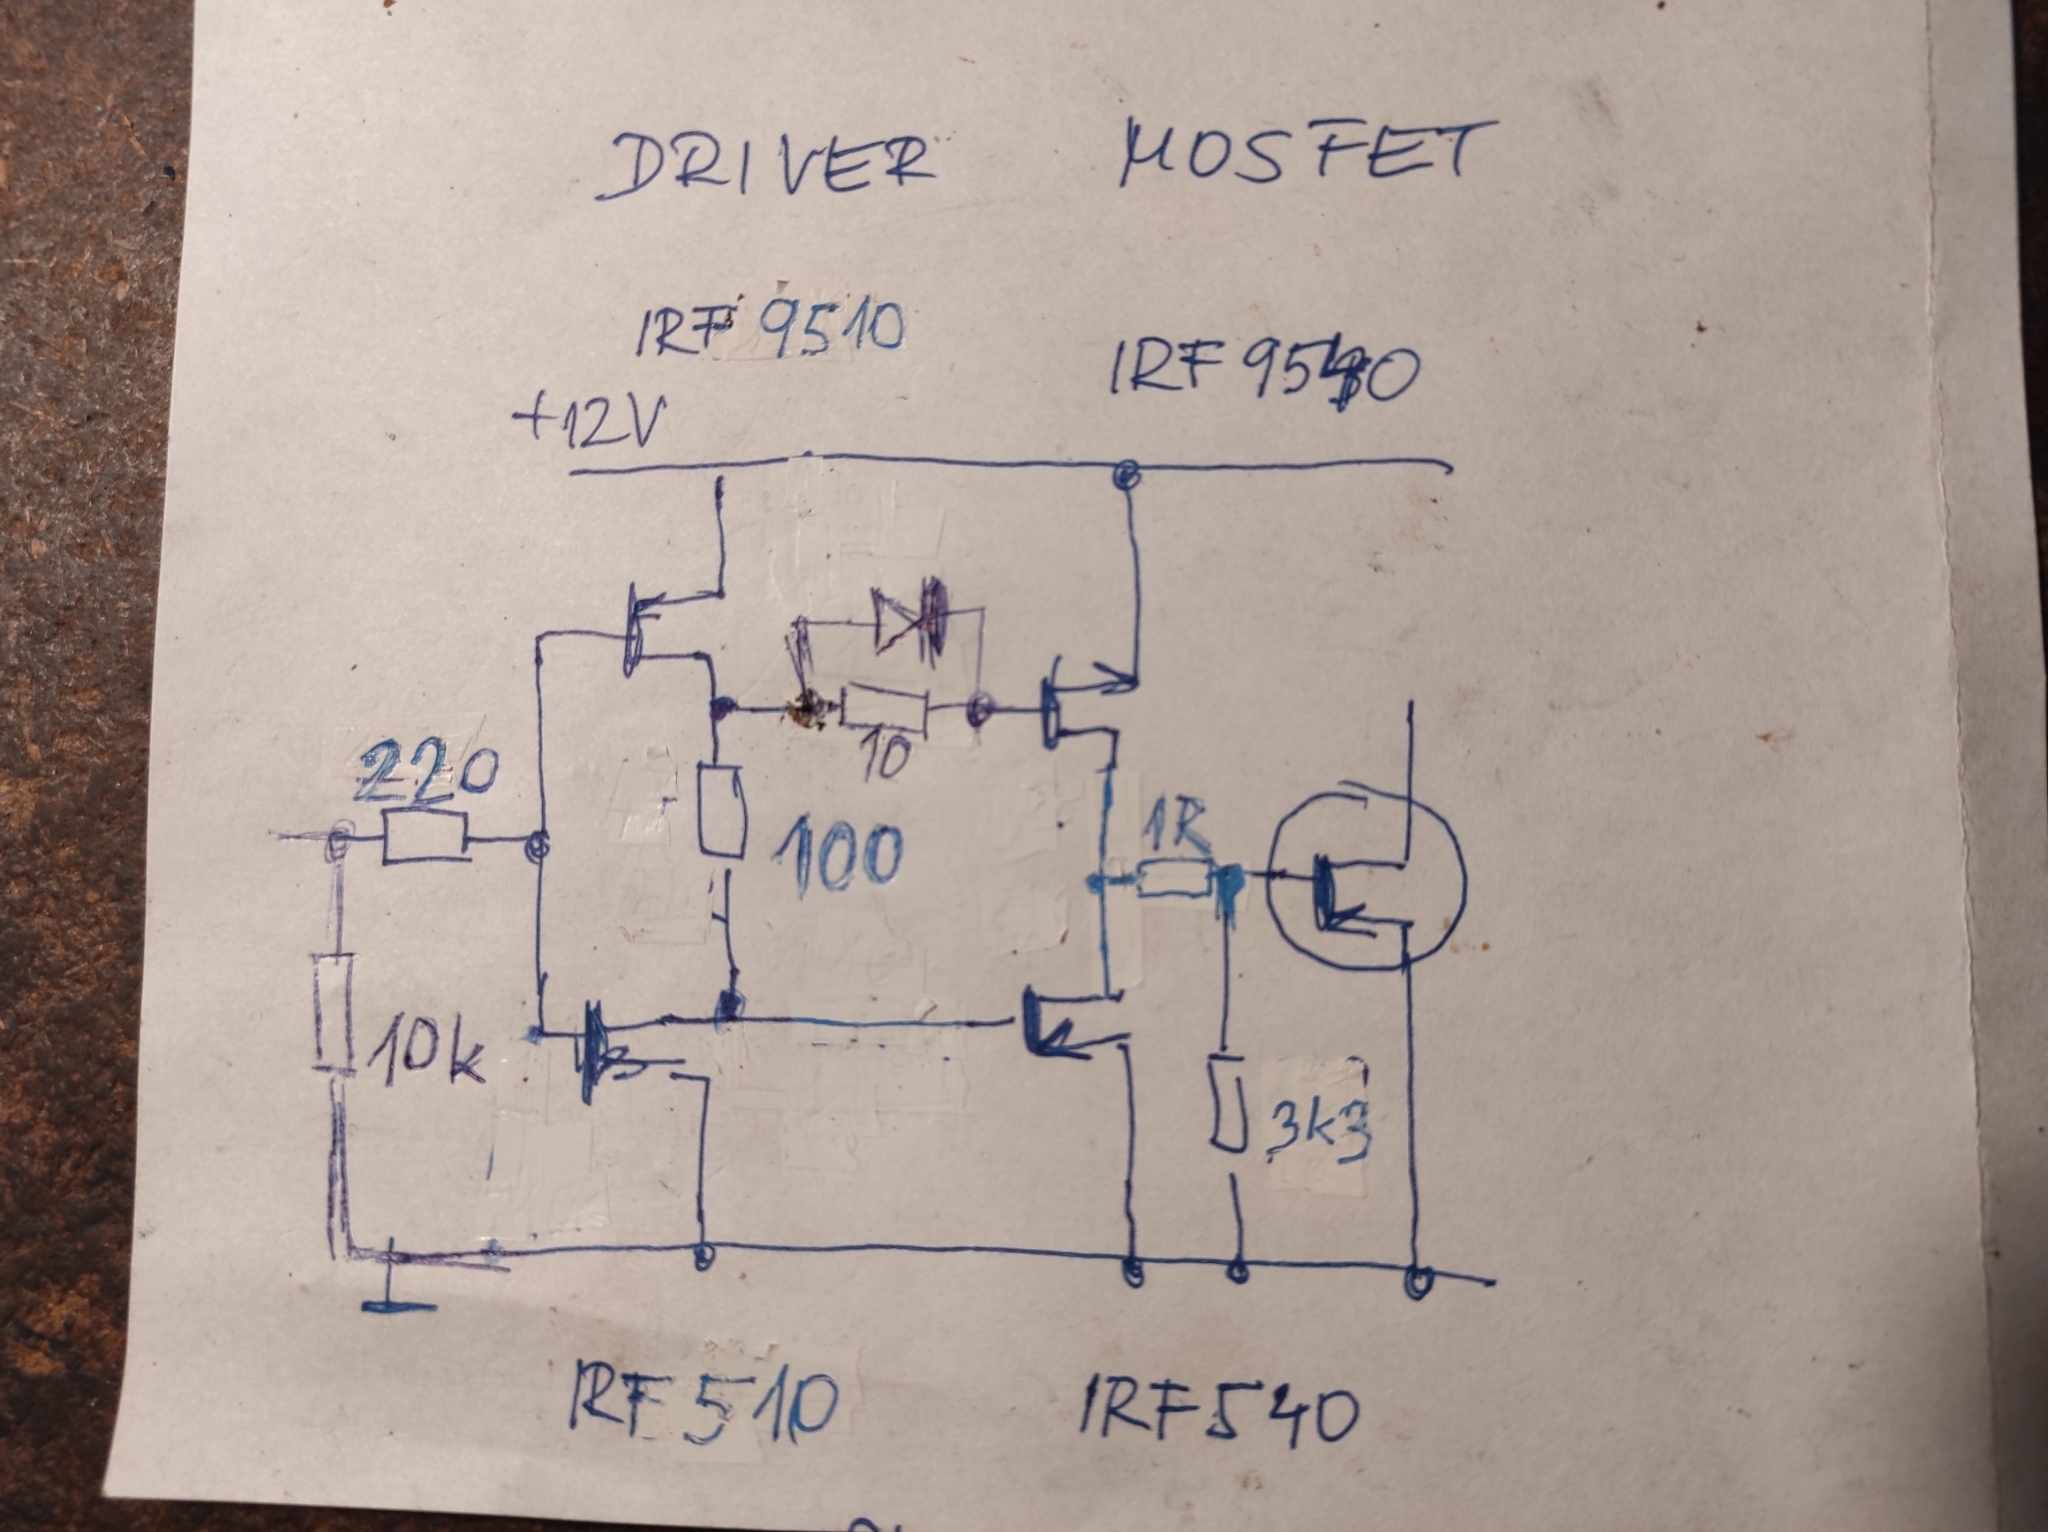 DRIVER MOSFET
IRF 9510
IRF 9540
+12V
10
220
100
1R
10k
3k3
IRF 510
IRF 540